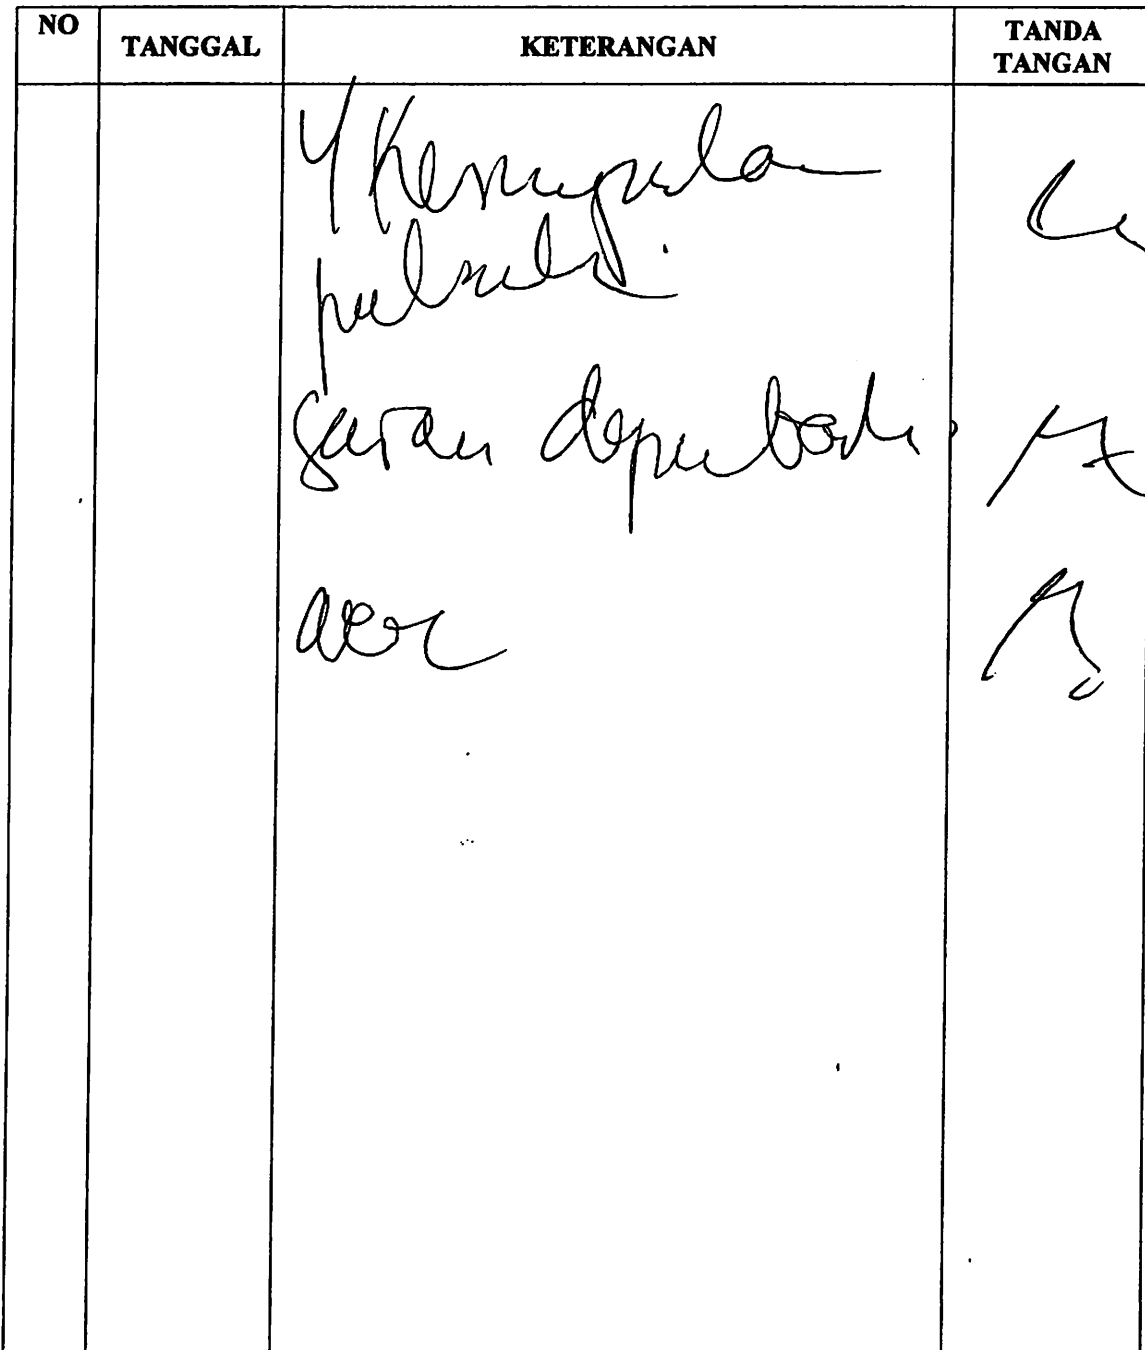 NO TANGGAL KETERANGAN TANDA TANGAN
Kesimpulan
saran diperbaiki
acc